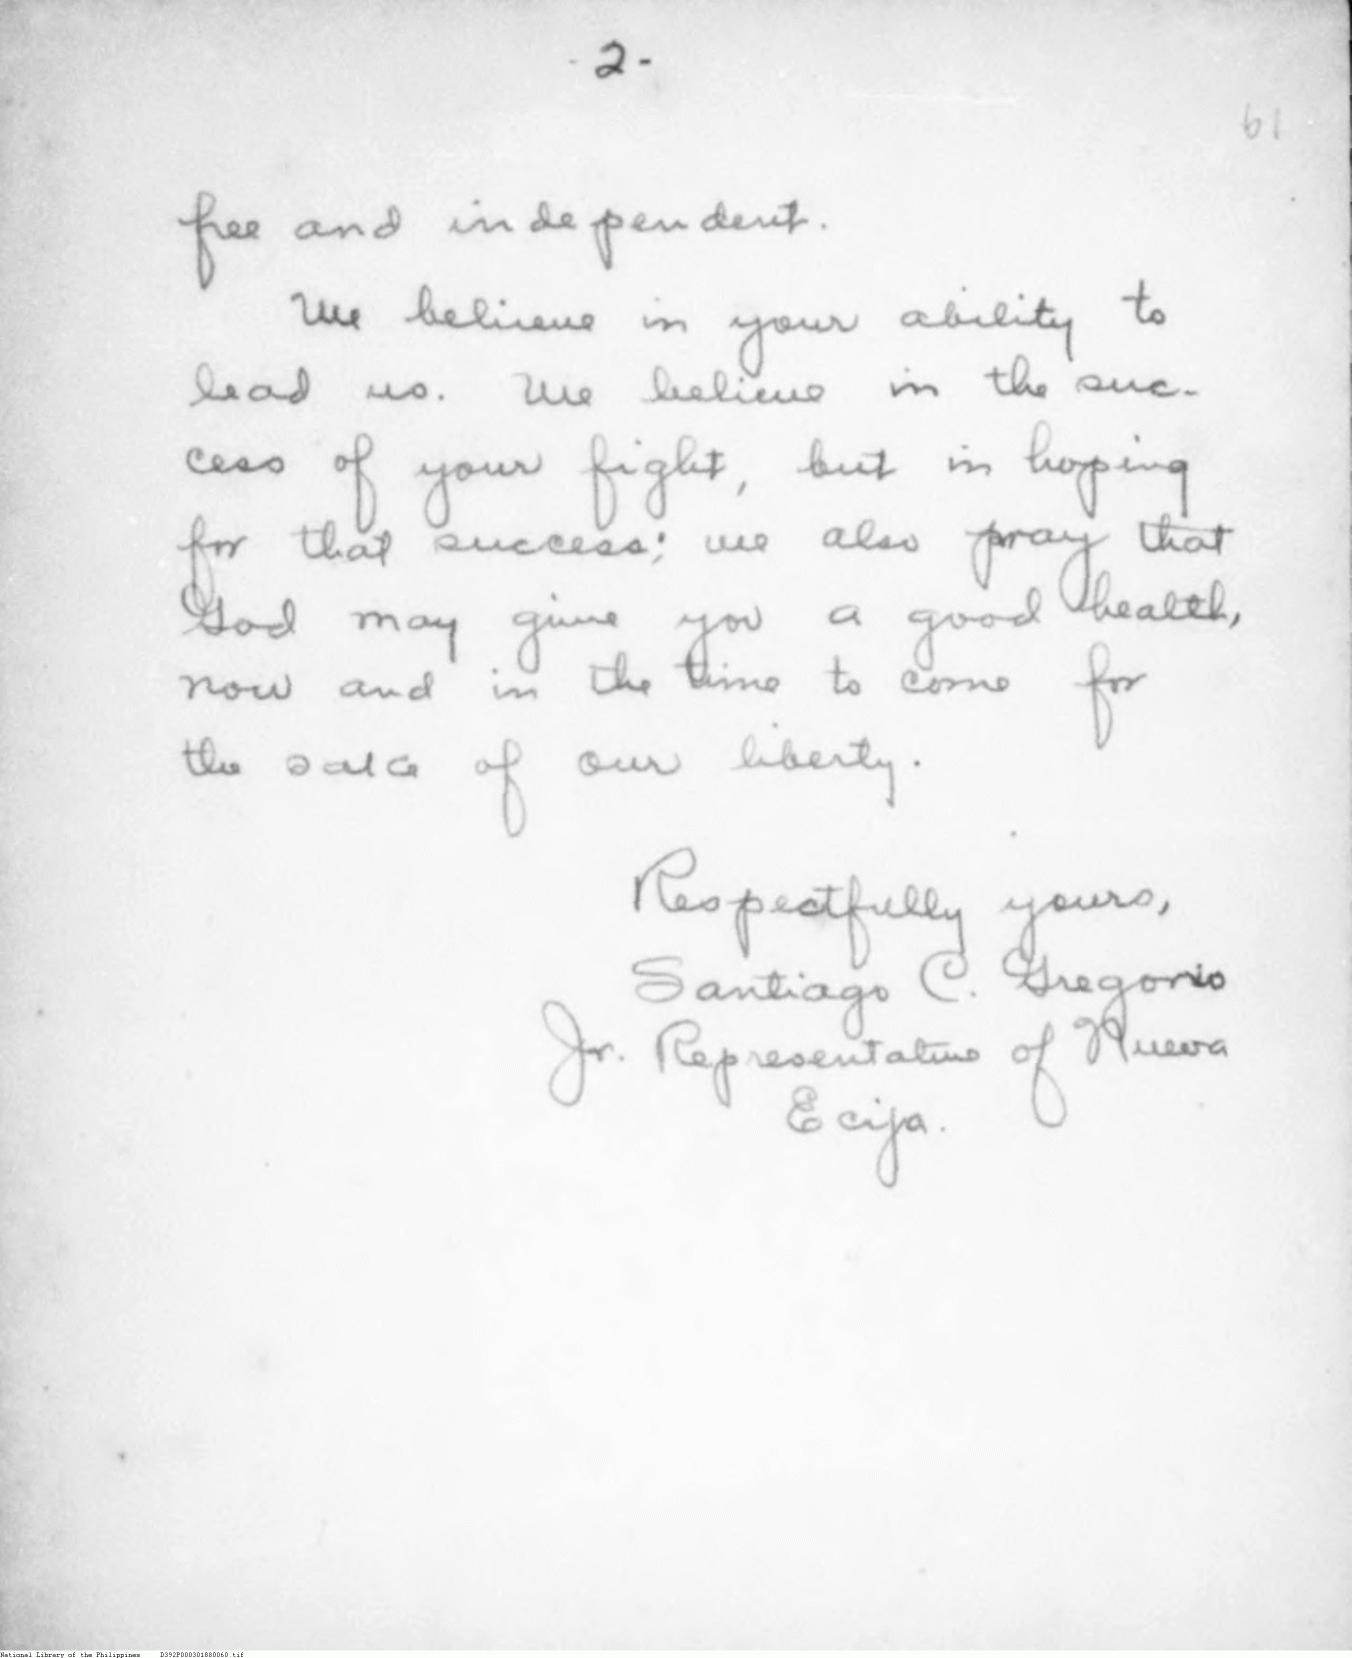 - 2 -
61
free and independent.
We believe in your ability to
lead us. We believe in the suc-
cess of your fight, but in hoping
for that success; we also pray that
God may give you a good health,
now and in the time to come for
the sake of our liberty.
Respectfully yours,
Santiago C. Gregorio
Jr. Representative of Nueva
Ecija.
National Library of the Philippines D392P000301880060.tif